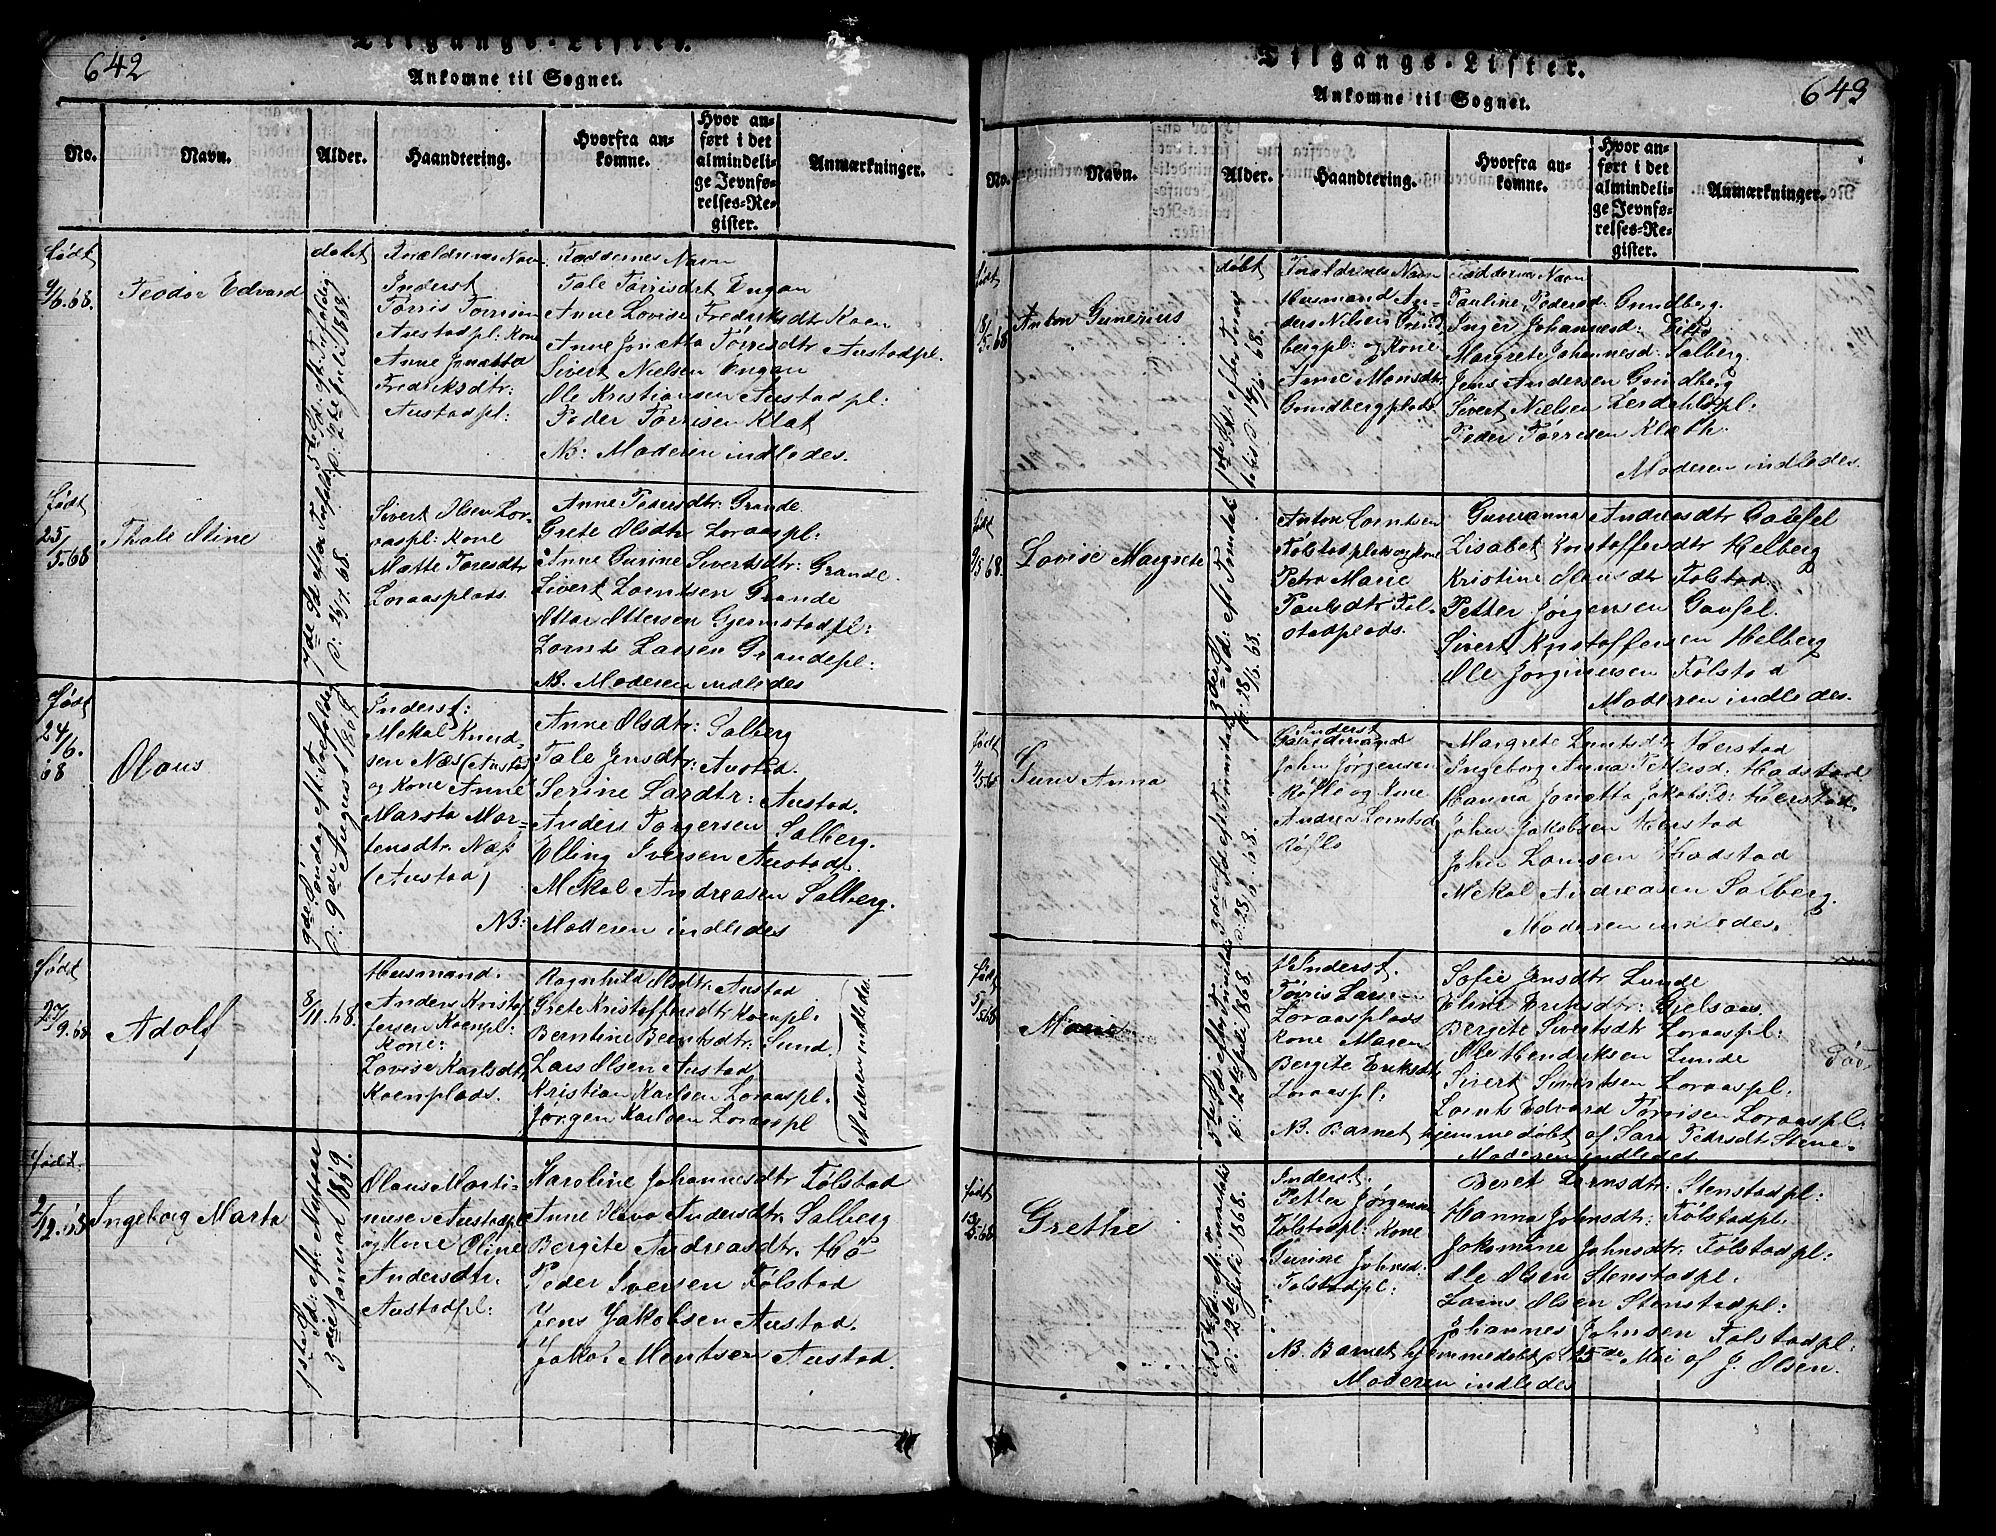 642
Tilgangs-Lister.
Ankomne til Sognet.
No.
Navn.
Alder.
Haandtering.
Hvorfra an-
komne.
Hvor an-
ført i det
almindeli-
ge Jevnfø-
relses-Re-
gister.
Anmærkninger.
Født
9/6.68.
Teodor Edvard
døbt
5te Sd: eft: Trefoldig:
d: 12te Juli 1868.
Forældrenes Navn
Inderst
Tørris Torrisen
Austadpl: Kone
Anne Jonætta
Fredriksdtr:
Austadpl:
Faddernes Navn
Tale Tørrisdtr Engan
Anne Lovise Fredriksdtr Koen
Anne Jonætta Tørrisdtr Austadpl.
Sivert Nielsen Engan
Ole Kristiansen Austadpl:
Peder Tørrisen Klæt
NB: Moderen indledes.
Født
25/5.68
Thale Stine
7de Sd efter Trefold:
d: 26/7.68.
Sivert Olsen Lor-
aaspl: Kone
Mætte Toresdtr
Loraasplads.
Anne Pedersdtr: Grande
Grete Olsdtr Loraaspl:
Anne Gurine Sivertsdtr: Grande.
Sivert Lorntsen Grande
Ottar Ottersen Gjermstadpl:
Lornts Larsen Grandepl:
NB. Moderen indledes
Født
24/6.
68
Olaus
9de Søndag eft: Trefoldig
d: 9de August 1868
Inderst:
Mekal Knud-
sen Næs (Austad)
og Kone Anne
Marsta Mor-
tensdtr: Næs
(Austad)
Anne Olsdtr: Salberg
Tale Jensdtr: Austad.
Serine Larsdtr: Austad.
Anders Torgersen Salberg.
Elling Iversen Austad.
Mekal Andreasen Salberg.
NB: Moderen indledes
Født
27/9.68
Adolf
8/11.68.
Husmand.
Anders Kristof-
fersen Koenpl:
Kone:
Lovise Karlsdtr
Koenplads.
Ragnhild Olsdtr: Austad
Grete Kristoffersdtr Koenpl:
Berntine Berntsdtr: Sund.
Lars Olsen Austad
Kristian Karlsen Loraaspl.
Jørgen Karlsen Loraaspl
Moderen indledes.
Født.
2/12.68
Ingeborg Marta
1ste Sd: eft: Nytaar
3die Januar 1869.
Olaus Marti-
nusen Austadpl
og Kone Oline
Andersdtr.
Austadpl:
Karoline Johannesdtr Følstad
Anne Olava Andersdtr Salberg
Bergite Andreasdtr: Hø
Peder Iversen Følstad
Jens Jakobsen Austad.
Jakob Mentsen Austad.
643
Tilgangs-Lister.
Ankomne til Sognet.
No.
Navn.
Alder.
Haandtering.
Hvorfra an-
komne.
Hvor an-
ført i det
almindeli-
ge Jevnfø-
relses-Re-
gister.
Anmærkninger.
født
18/5.68
Anton Gunerius
døbt
1ste Sd: efter Trini
tatis d 14/6.68.
Forældrenes Navn
Husmand An-
ders Nilsen Grund
bergpl: og Kone
Anne Monsdtr
Grundbergplads.
Faddernes Navn
Pauline Pedersd. Grundberg.
Inger Johannesd: Ditto
Margrete Johannesd: Salberg.
Jens Andersen Grundberg
Sivert Nielsen Lerdahlspl:
Peder Tørrisen Klæth.
Moderen indledes.
født
9/5 68.
Lovise Margrete
3die Sd: eft Trinitat:
d: 28/6.68.
Anton Lorntsen
Følstadplads og Kone
Petra Marie
Paulsdtr Føl-
stadplads.
Gurianna Andreasdtr Gausel
Lisabet Kristoffersdtr Helberg
Kristine Olausdtr Følstad.
Petter Jørgensen Gausel.
Sivert Kristoffersen Helberg
Ole Jørginusen Følstad
Moderen indledes.
Født
4/5 68
Guru Anna
3die Sd. eft: Trinitatis
d: 28/6.68.
Inderst
John Jørgensen
Røflo og Kone
Andrea Lorntsd
Røflo
Margrete Lorntsdtr Herstad
Ingeborg Anna Pettersd: Hadstad
Hanna Jonætta Jakobsd: Herstad.
John Jakobsen Herstad
John Larnsen Hadstad
Mekal Andreasen Salberg.
Moderen indledes.
Født
5/5 68
Marie
5te Sd: efter Trinitatis
d: 12te Juli 1868.
Inderst.
Tørris Larsen
Loraasplads
Kone Maren
Bergite Eriksdtr
Loraaspl:
Sofie Jensdtr Lunde
Eline Eriksdtr: Gjelsaas
Bergite Sivertsdtr Loraaspl:
Ole Hendriksen Lunde
Sivert Sivertsen Loraaspl:
Lornts Edvard Tørrisen Loraaspl.
NB. Barnet hjemmedøbt af Sara Pedrsdtr Stene.
Moderen indledes
født
13/5.68
Grethe
5te Sd: eft: Trinitatis
d: 12te Juli 1868.
Inderst.
Petter Jørgensen
Følstadpl: Kone
Gurine Johnsd:
Følstadpl:
Beret Larsdtr: Stenstadpl:
Hanna Johnsdtr: Følstadpl:
Jokomine Johnsdtr: Følstadpl:
Ole Olsen Stenstadpl.
Larns Olsen Stenstadpl:
Johannes Johnsen Følstadpl:
NB. Barnet hjemmedøbt d: 15de Mai af J. Olsen.
Moderen indledes